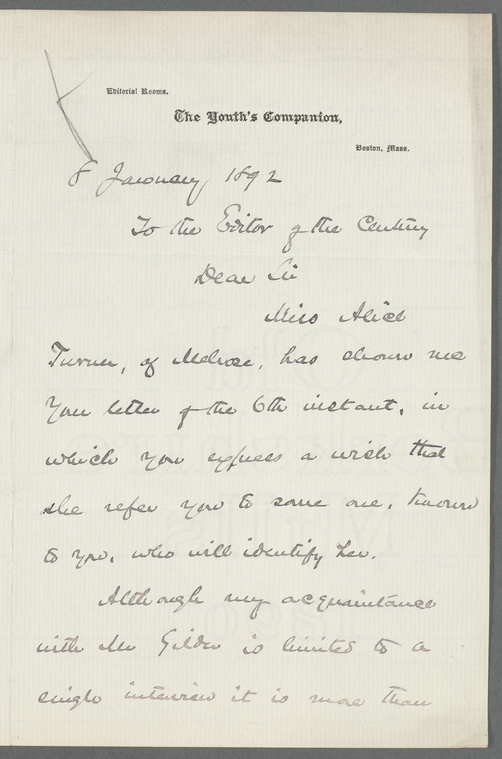 Editorial Rooms.
The Youth's Companion,
Boston, Mass.
8 January, 1892
To the Editor of the Century
Dear Sir
Miss Alice
Turner, of Melrose, has shown me
your letter of the 6th instant, in
which you express a wish that
she refer you to some one, known
to you, who will identify her.
Although my acquaintance
with Mr Gilder is limited to a
single interview it is more than